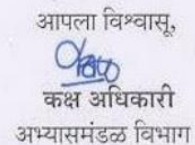 आपला विश्वासू,
कक्ष अधिकारी
अभ्यासमंडळ विभाग